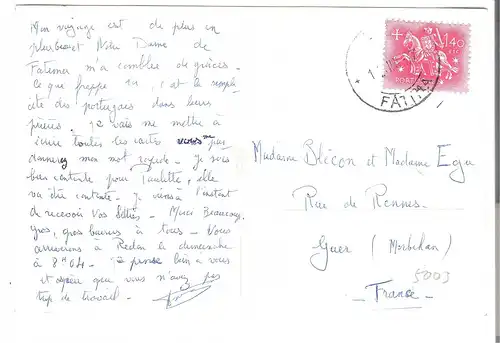 Mon voyage est de plus en
plus beau et Notre Dame de
Fatima m'a comblée de grâces.
Ce que frappe au, c'est la simpli
cité des portugais dans leurs
prières. Je vais me mettre à
écrire toutes les cartes pas
mon mot rapide. Je suis
bien contente pour Paulette, elle
va être contente. Je viens à l'instant
de recevoir vos lettres. Merci Beaucoup.
gros, gros baisers à tous. Nous
arriverons à Redon le dimanche
à 8H04. Je pense bien à vous
et espère que vous n'avez pas
trop de travail.
1$40
PORTUGAL
FATIMA
Madame Blécon et Madame Egu
Rue de Rennes.
Guer (Morbihan)
5003
France